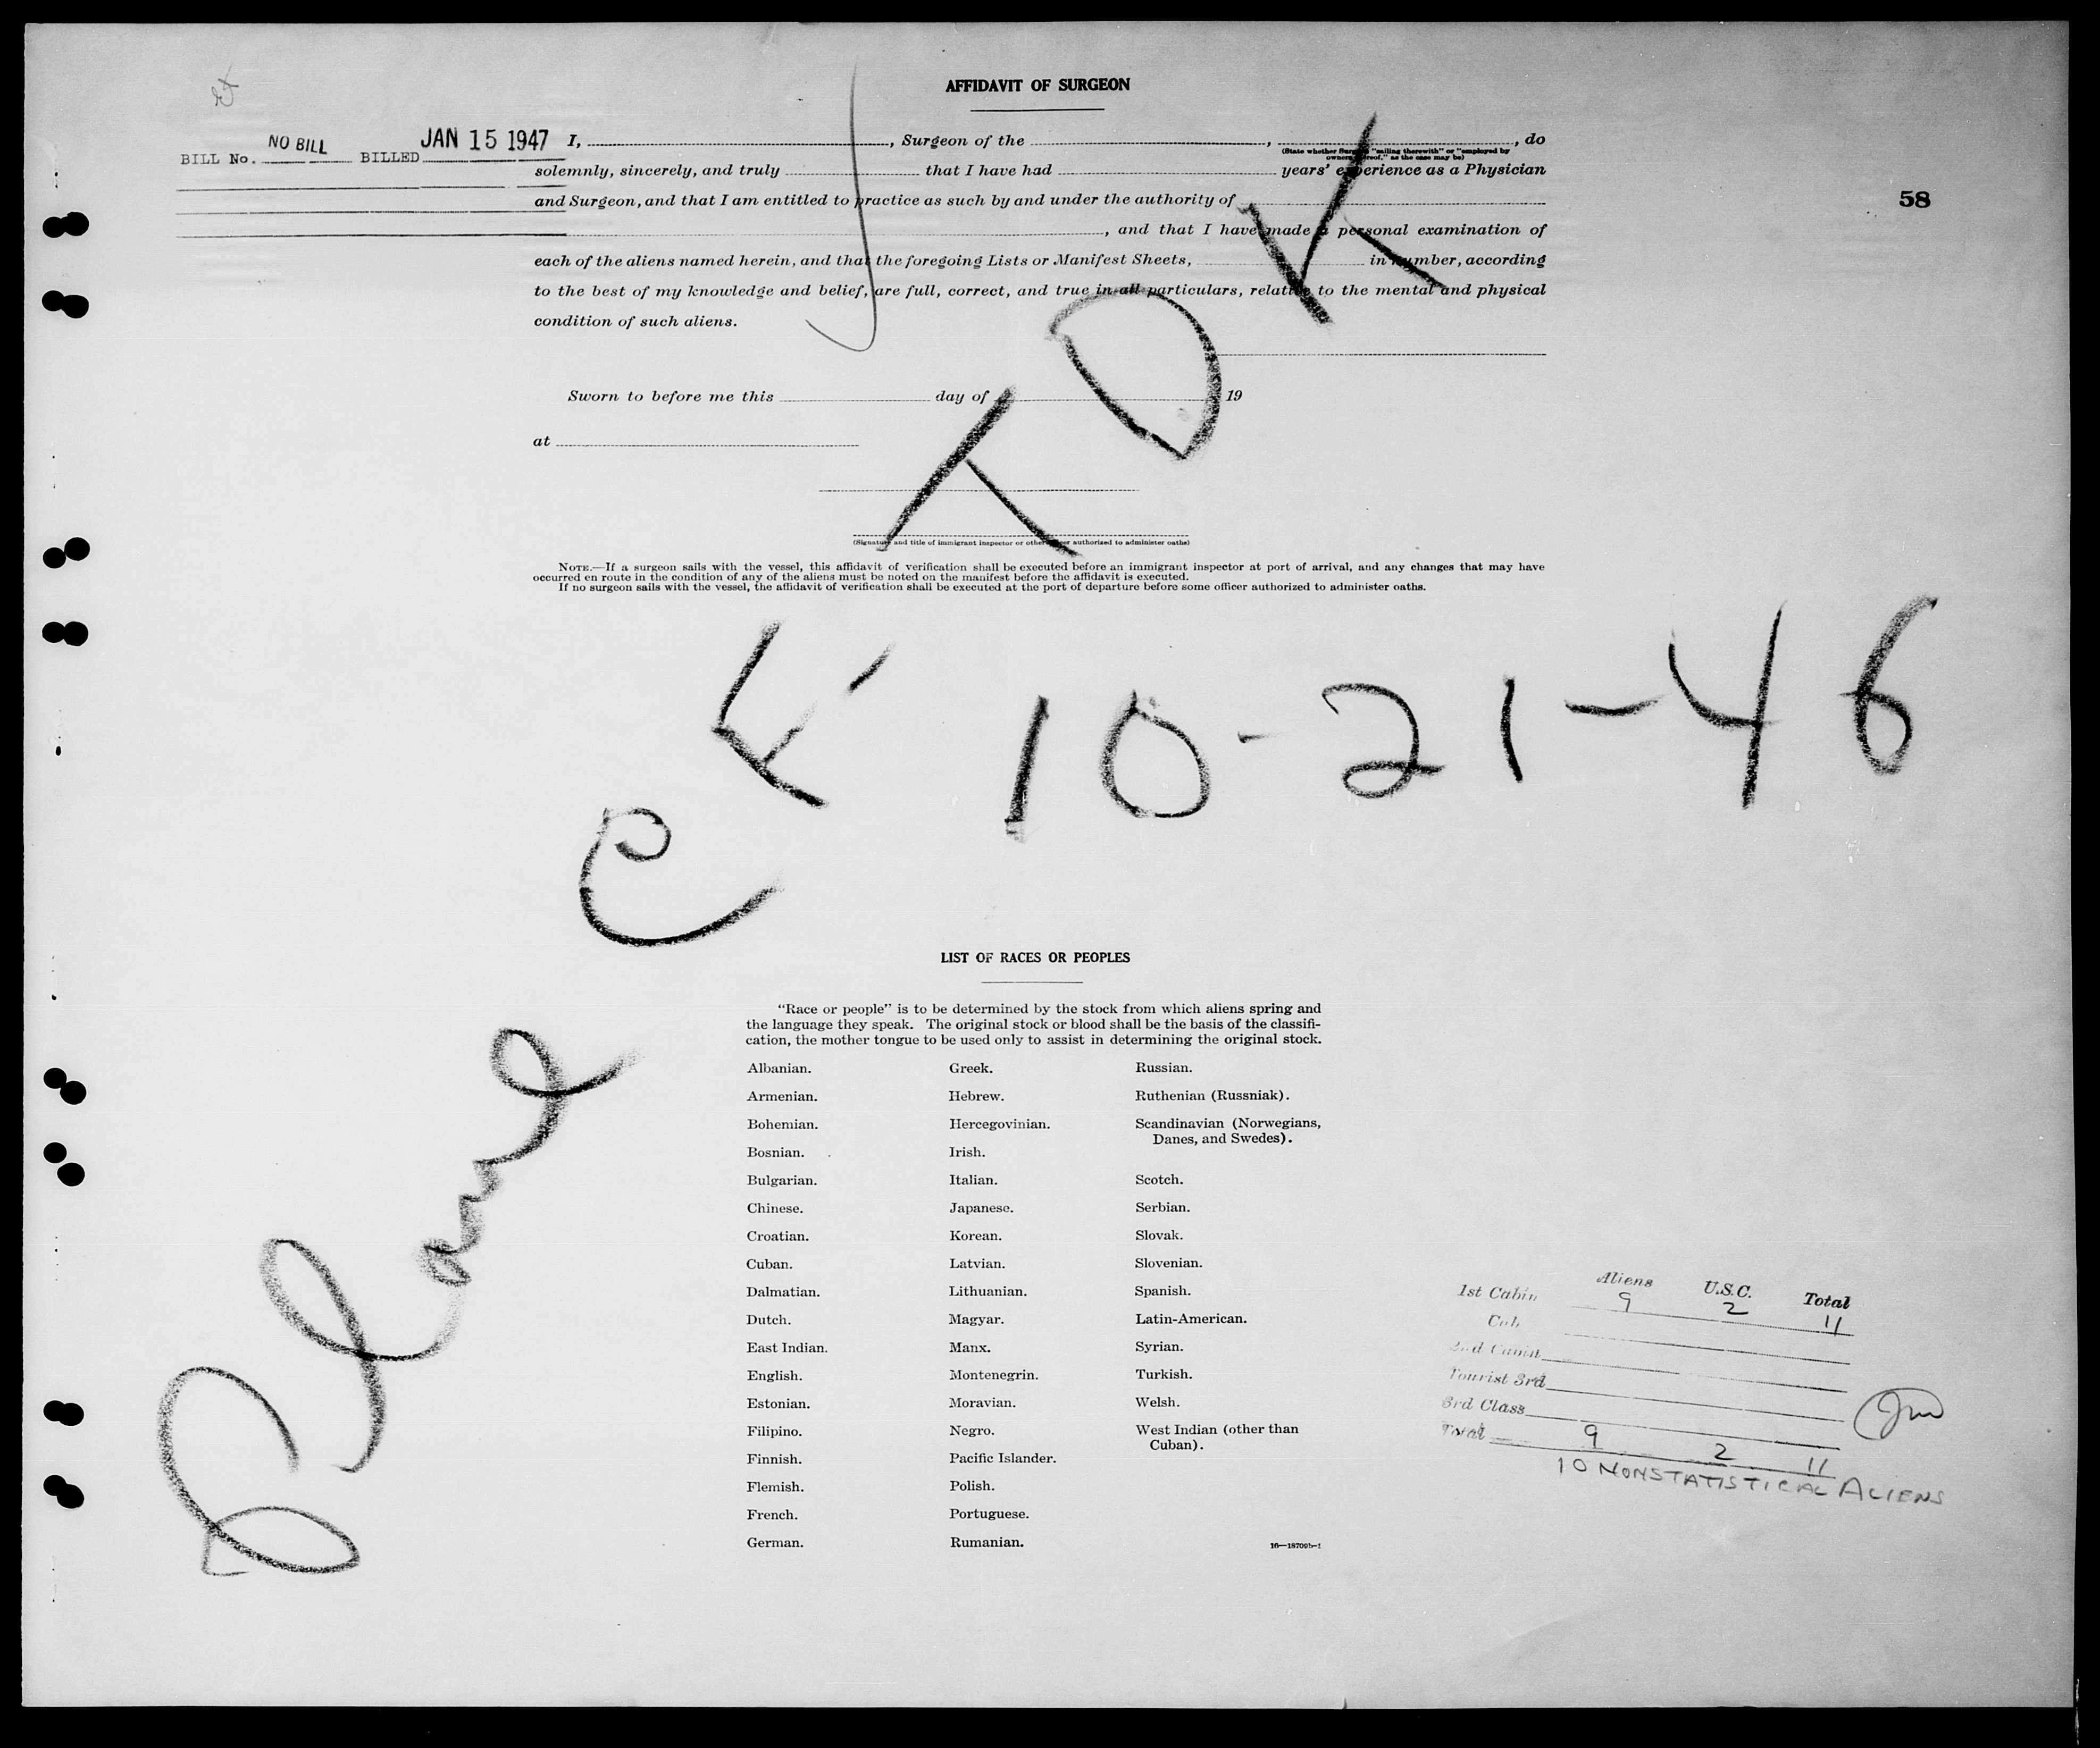 AFFIDAVIT OF SURGEON
BILL No. NO BILL BILLED JAN 15 1947
I, , Surgeon of the , , do
(State whether Surgeon "sailing therewith" or "employed by
owners thereof," as the case may be)
solemnly, sincerely, and truly that I have had years' experience as a Physician
and Surgeon, and that I am entitled to practice as such by and under the authority of
, and that I have made a personal examination of
each of the aliens named herein, and that the foregoing Lists or Manifest Sheets, in number, according
to the best of my knowledge and belief, are full, correct, and true in all particulars, relative to the mental and physical
condition of such aliens.
58
Sworn to before me this day of 19
at
(Signature and title of immigrant inspector or other officer authorized to administer oaths)
NOTE.—If a surgeon sails with the vessel, this affidavit of verification shall be executed before an immigrant inspector at port of arrival, and any changes that may have
occurred en route in the condition of any of the aliens must be noted on the manifest before the affidavit is executed.
If no surgeon sails with the vessel, the affidavit of verification shall be executed at the port of departure before some officer authorized to administer oaths.
Plane
10-21-46
LIST OF RACES OR PEOPLES
"Race or people" is to be determined by the stock from which aliens spring and
the language they speak. The original stock or blood shall be the basis of the classifi-
cation, the mother tongue to be used only to assist in determining the original stock.
Albanian.
Armenian.
Bohemian.
Bosnian.
Bulgarian.
Chinese.
Croatian.
Cuban.
Dalmatian.
Dutch.
East Indian.
English.
Estonian.
Filipino.
Finnish.
Flemish.
French.
German.
Greek.
Hebrew.
Hercegovinian.
Irish.
Italian.
Japanese.
Korean.
Latvian.
Lithuanian.
Magyar.
Manx.
Montenegrin.
Moravian.
Negro.
Pacific Islander.
Polish.
Portuguese.
Rumanian.
Russian.
Ruthenian (Russniak).
Scandinavian (Norwegians,
Danes, and Swedes).
Scotch.
Serbian.
Slovak.
Slovenian.
Spanish.
Latin-American.
Syrian.
Turkish.
Welsh.
West Indian (other than
Cuban).
16—18709b-1
Aliens U.S.C. Total
1st Cabin 9 2 11
Cab
2nd Cabin
Tourist 3rd
3rd Class
Total 9 2 11
10 NONSTATISTICAL ALIENS